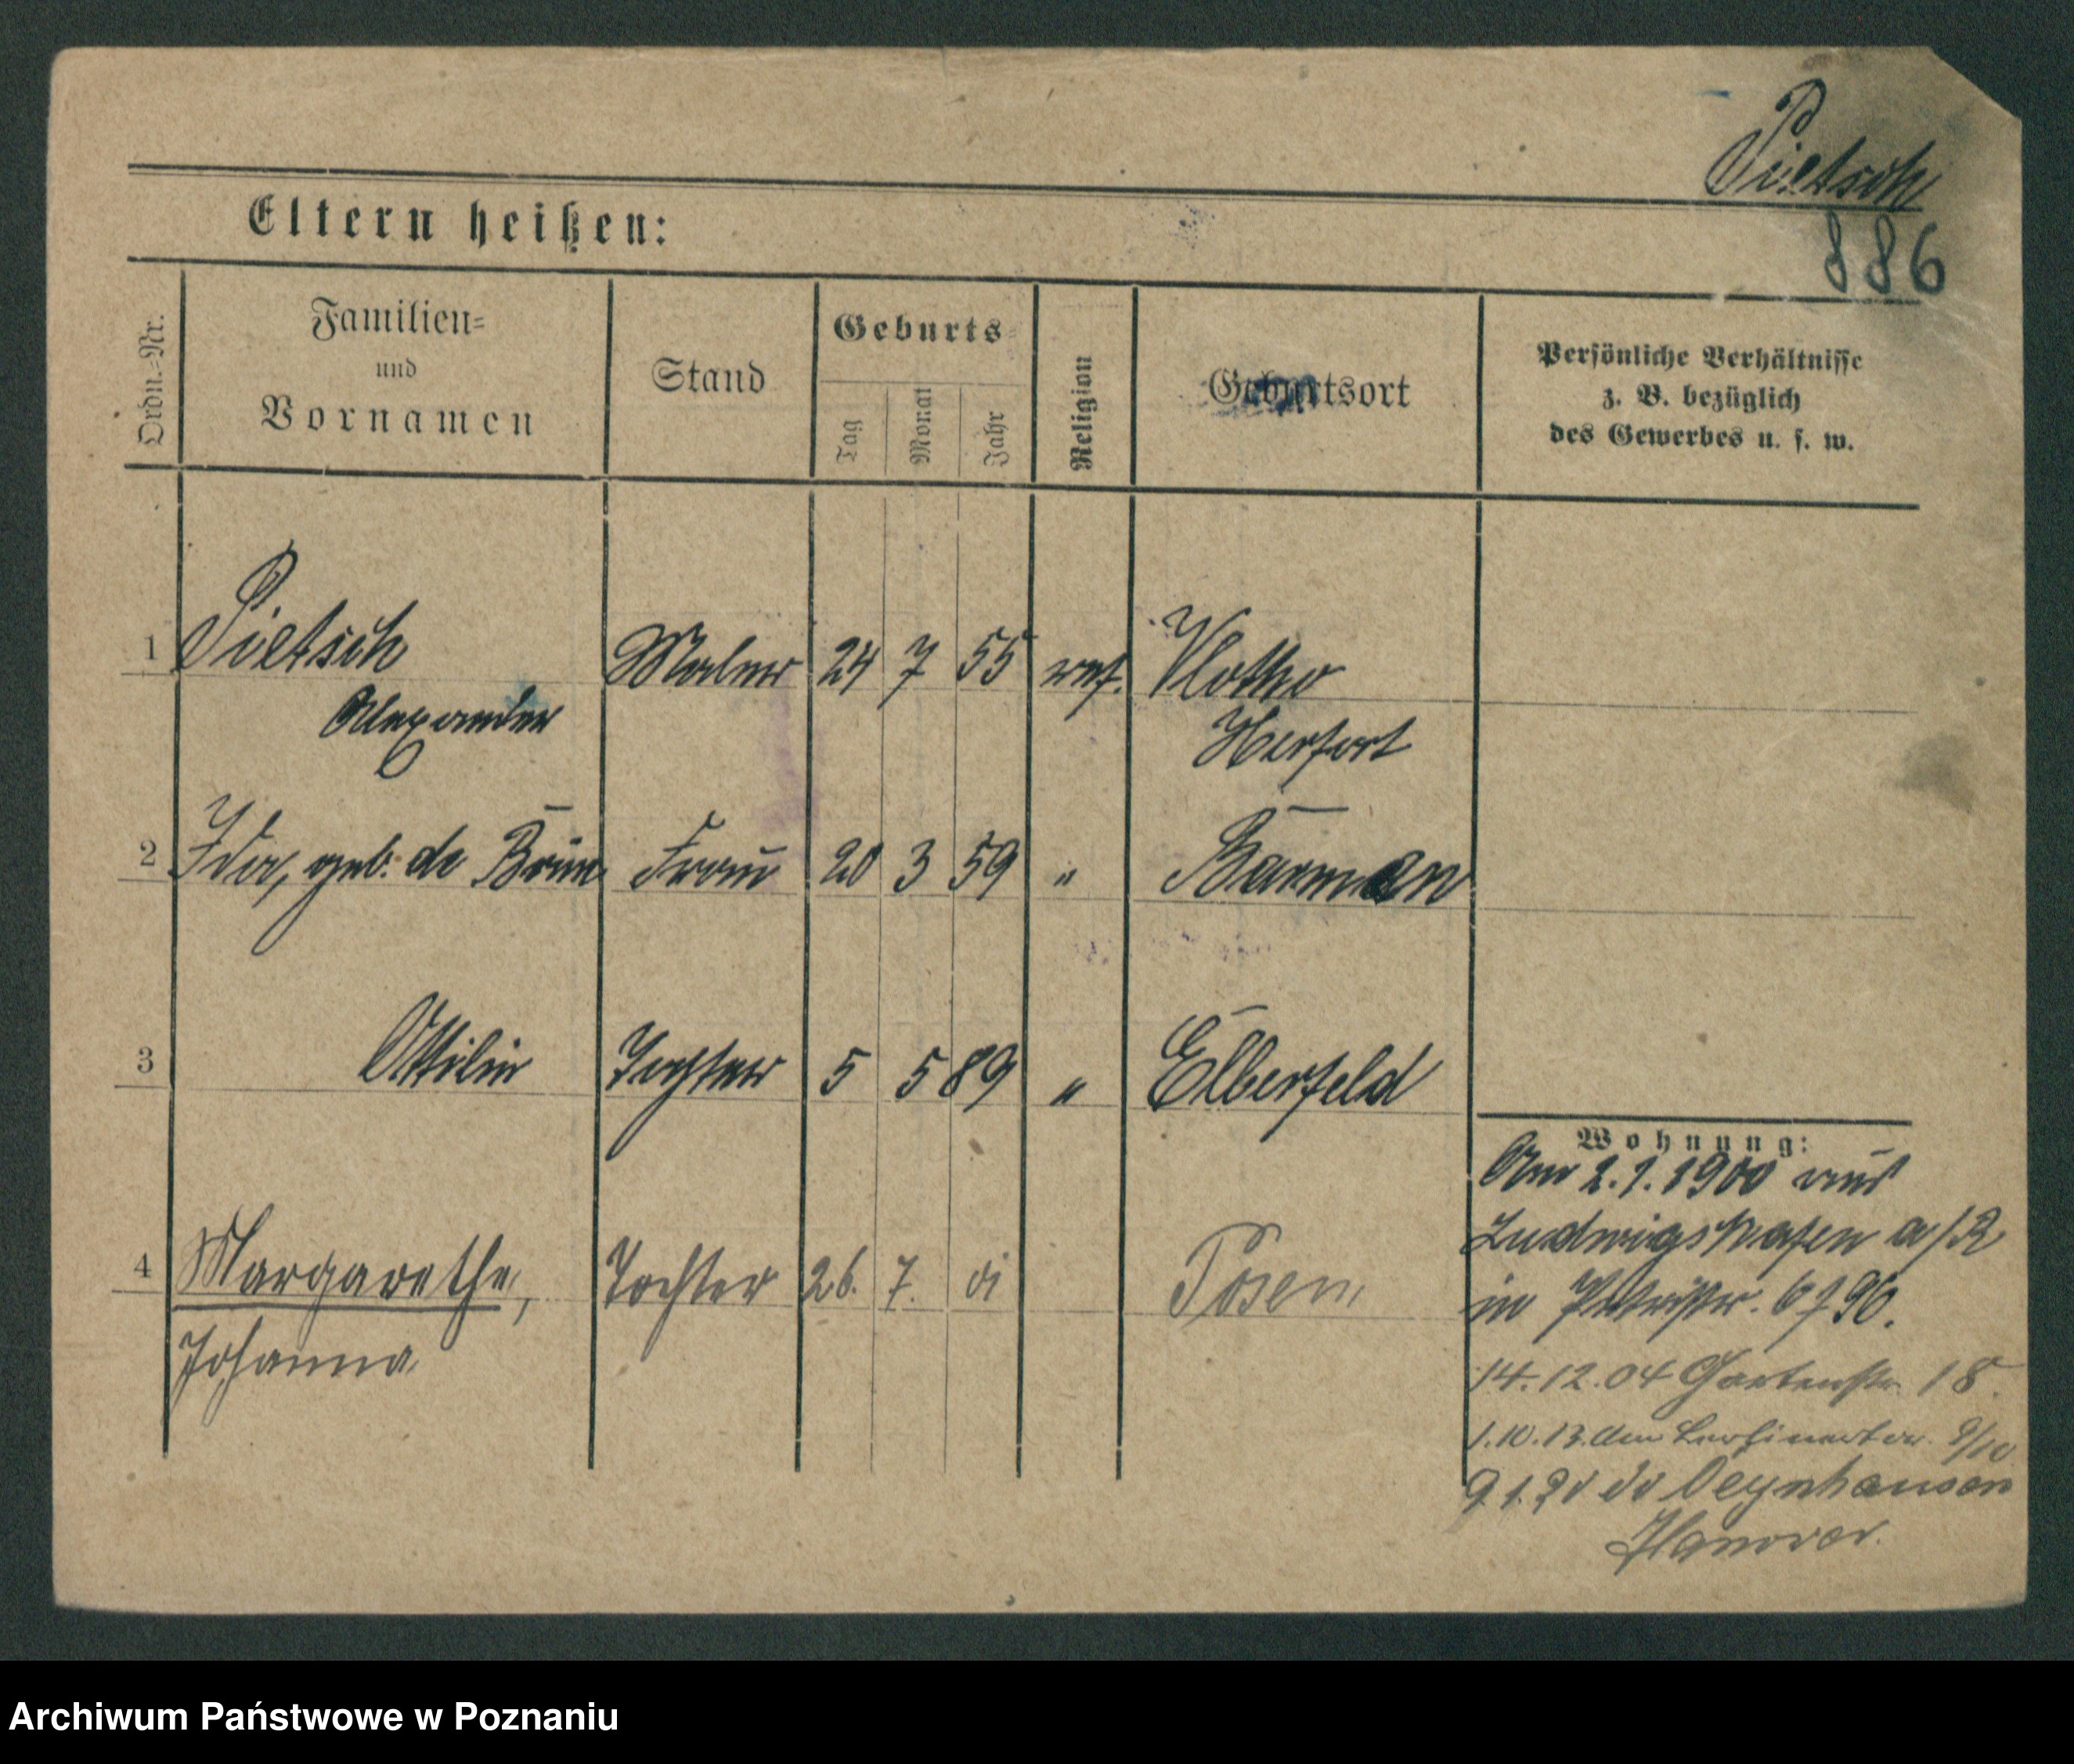 Pietsch
886
Eltern heißen:
Ordn.-Nr.
Familien-
und
Vornamen
Stand
Geburts-
Tag
Monat
Jahr
Religion
Geburtsort
Persönliche Verhältnisse
z. B. bezüglich
des Gewerbes u. s. w.
1 Pietsch Maler 24 7 55 ref. Vlotho
Alexander Herfort
2 Ida, geb. de Brun Frau 20 3 59 " Barmen
3 Ottilie Tochter 5 5 89 " Elberfeld
4 Margarethe, Tochter 26. 7. 01 Posen
Johanna
Wohnung:
Am 2.1.1900 aus
Ludwigshafen a/R
in 6 f 96.
14.12.04 Gartenstr. 18.
1.10.13. 9/10
9 1. Oeynhausen
Hanover.
Archiwum Państwowe w Poznaniu